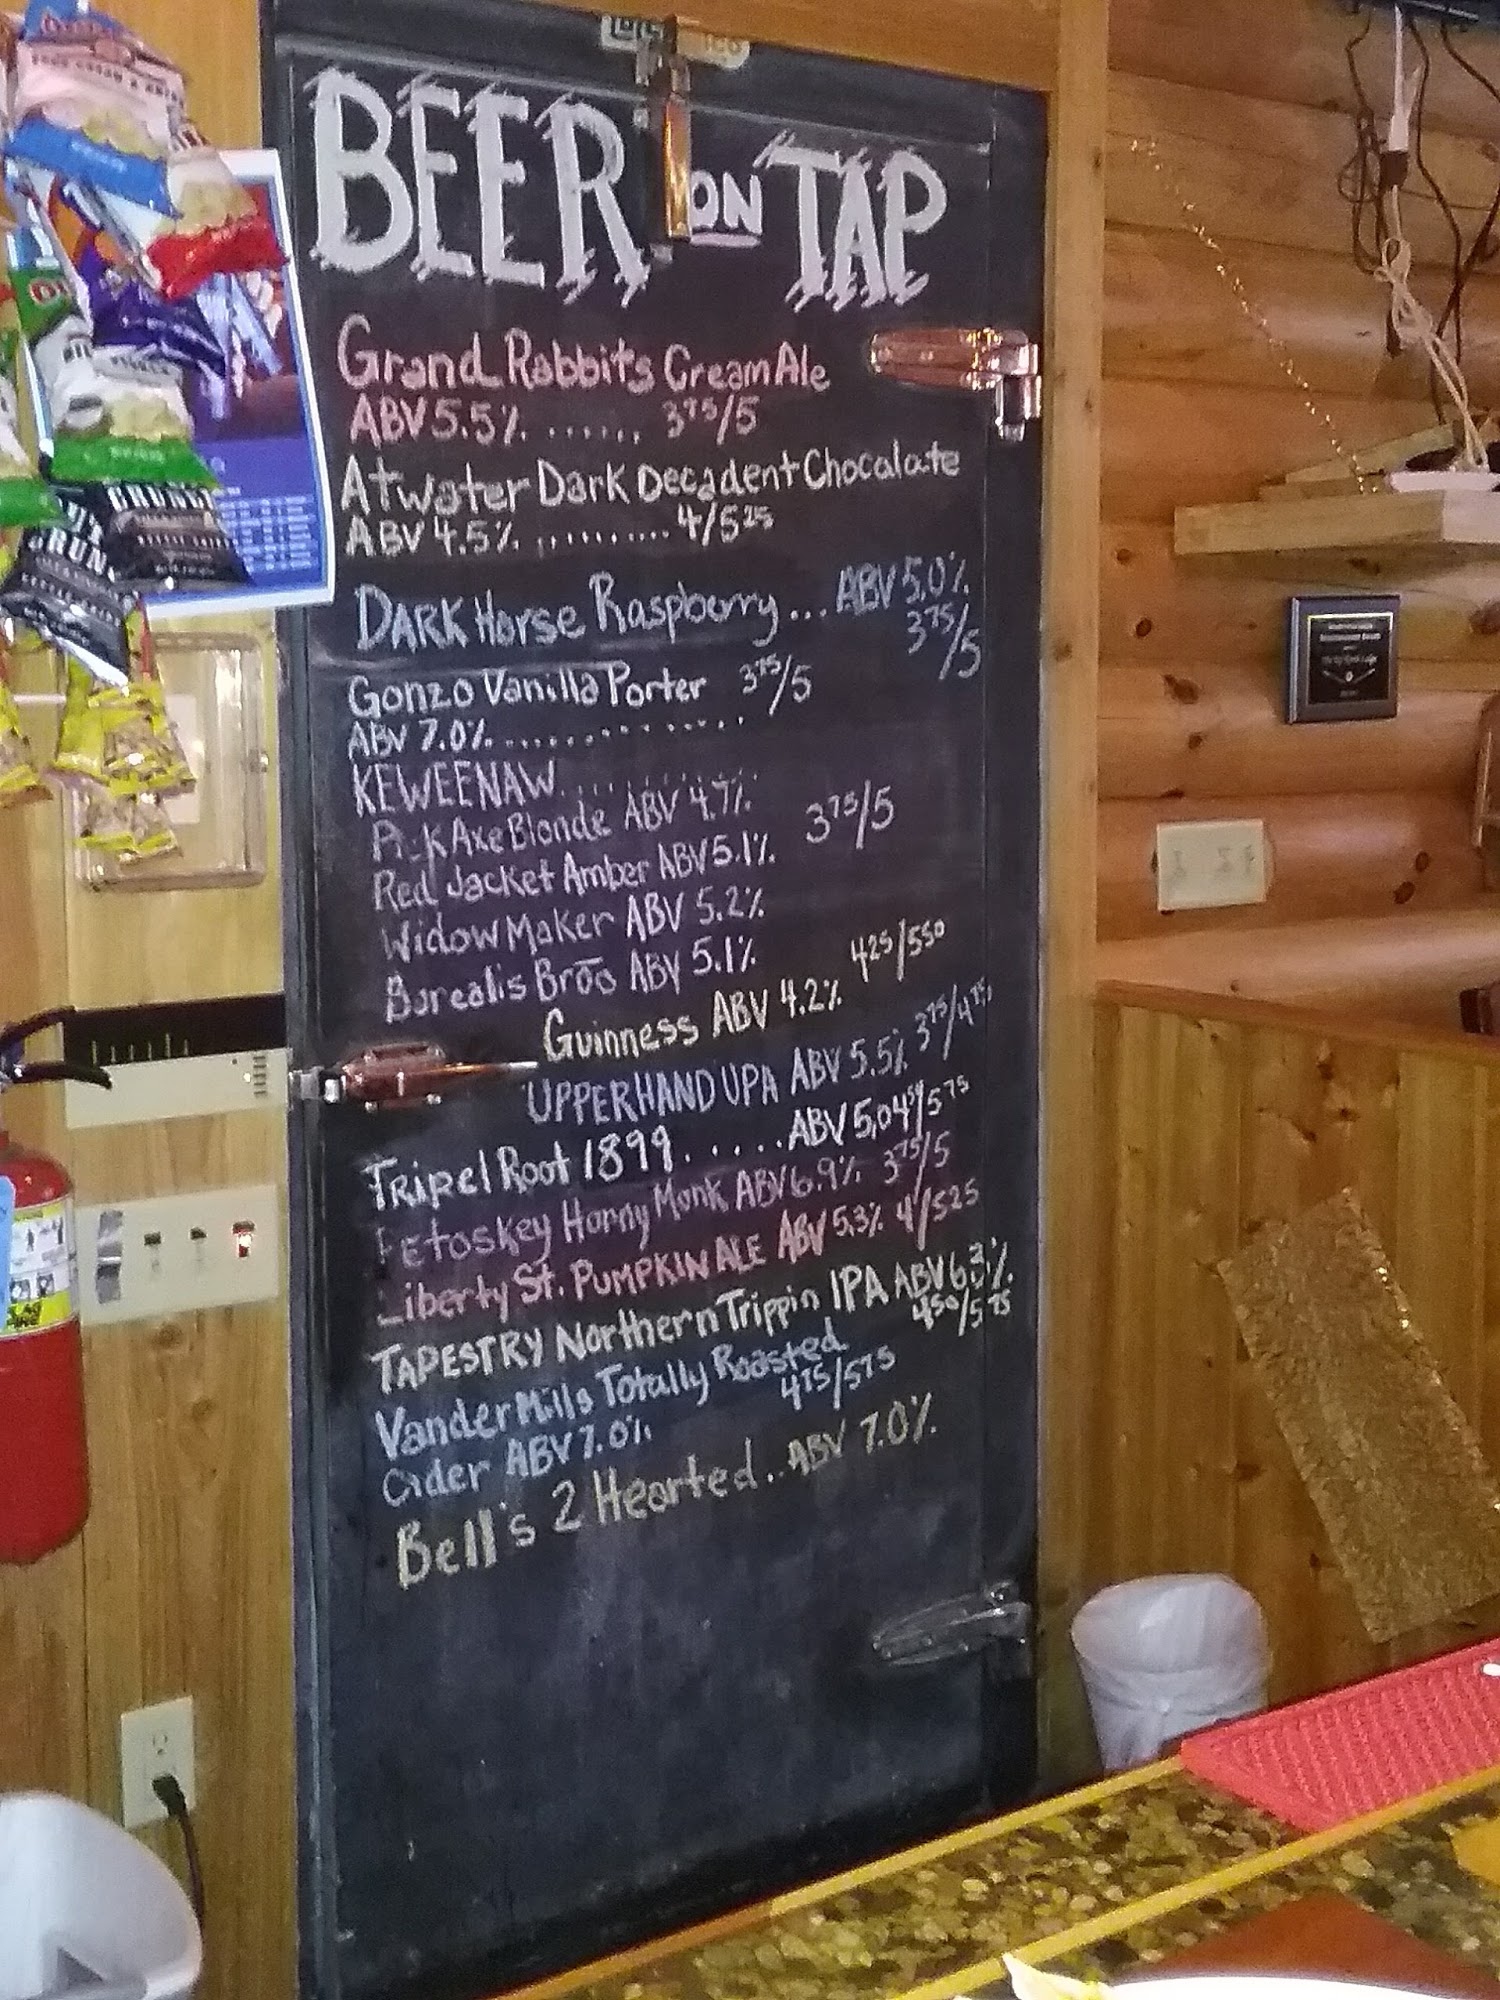 BEER ON TAP
Grand Rabbits Cream Ale
ABV 5.5% ...... 3⁷⁵/5
Atwater Dark Decadent Chocalate
ABV 4.5% .......... 4/5²⁵
DARK Horse Raspberry... ABV 5.0%
3⁷⁵/5
Gonzo Vanilla Porter 3⁷⁵/5
ABV 7.0% ..............
KEWEENAW..........
Pick Axe Blonde ABV 4.7%
Red Jacket Amber ABV 5.1% 3⁷⁵/5
Widow Maker ABV 5.2%
Borealis Broo ABV 5.1%
Guinness ABV 4.2% 4²⁵/5⁵⁰
UPPERHAND UPA ABV 5.5% 3⁷⁵/4⁷⁵
Tripel Root 1899......ABV 5.0 4⁵⁰/5⁷⁵
Petoskey Horny Monk ABV 6.9% 3⁷⁵/5
Liberty St. PUMPKIN ALE ABV 5.3% 4/5²⁵
TAPESTRY Northern Trippin IPA ABV 6.3%
4⁵⁰/5⁷⁵
Vander Mills Totally Roasted
4⁷⁵/5⁷⁵
Cider ABV 7.0%
Bell's 2 Hearted..ABV 7.0%